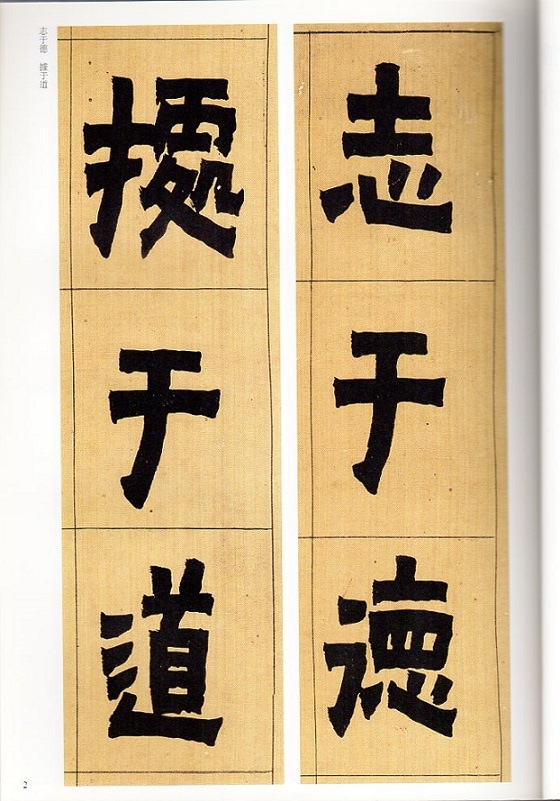 志于德
據于道
志于德 據于道
2